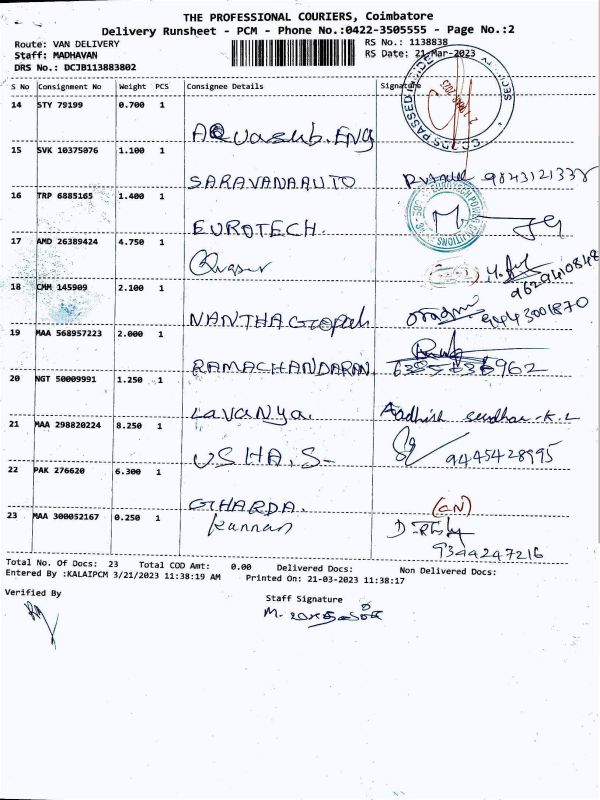 THE PROFESSIONAL COURIERS, Coimbatore
Delivery Runsheet - PCM - Phone No.:0422-3505555 - Page No.:2
Route: VAN DELIVERY
RS No.: 1138838
Staff: MADHAVAN
RS Date: 21-Mar-2023
DRS No.: DCJB113883802
S No Consignment No Weight PCS Consignee Details Signature
14 STY 79199 0.700 1
AQuasub.ENG
15 SVK 10375076 1.100 1
SARAVANA AUTO 9843121338
16 TRP 6885165 1.400 1
EUROTECH.
17 AMD 26389424 4.750 1
9629410848
18 CMM 145909 2.100 1
NANTHAGopal 9443001870
19 MAA 568957223 2.000 1
RAMACHANDARAN
20 NGT 50009991 1.250 1
Lavanya. Aadhish
21 MAA 298820224 8.250 1
USHA.S 9445428995
22 PAK 276620 6.300 1
GHARDA. (CN)
23 MAA 300052167 0.250 1
kannan
9344247216
Total No. Of Docs: 23 Total COD Amt: 0.00 Delivered Docs: Non Delivered Docs:
Entered By :KALAIPCM 3/21/2023 11:38:19 AM Printed On: 21-03-2023 11:38:17
Verified By
Staff Signature